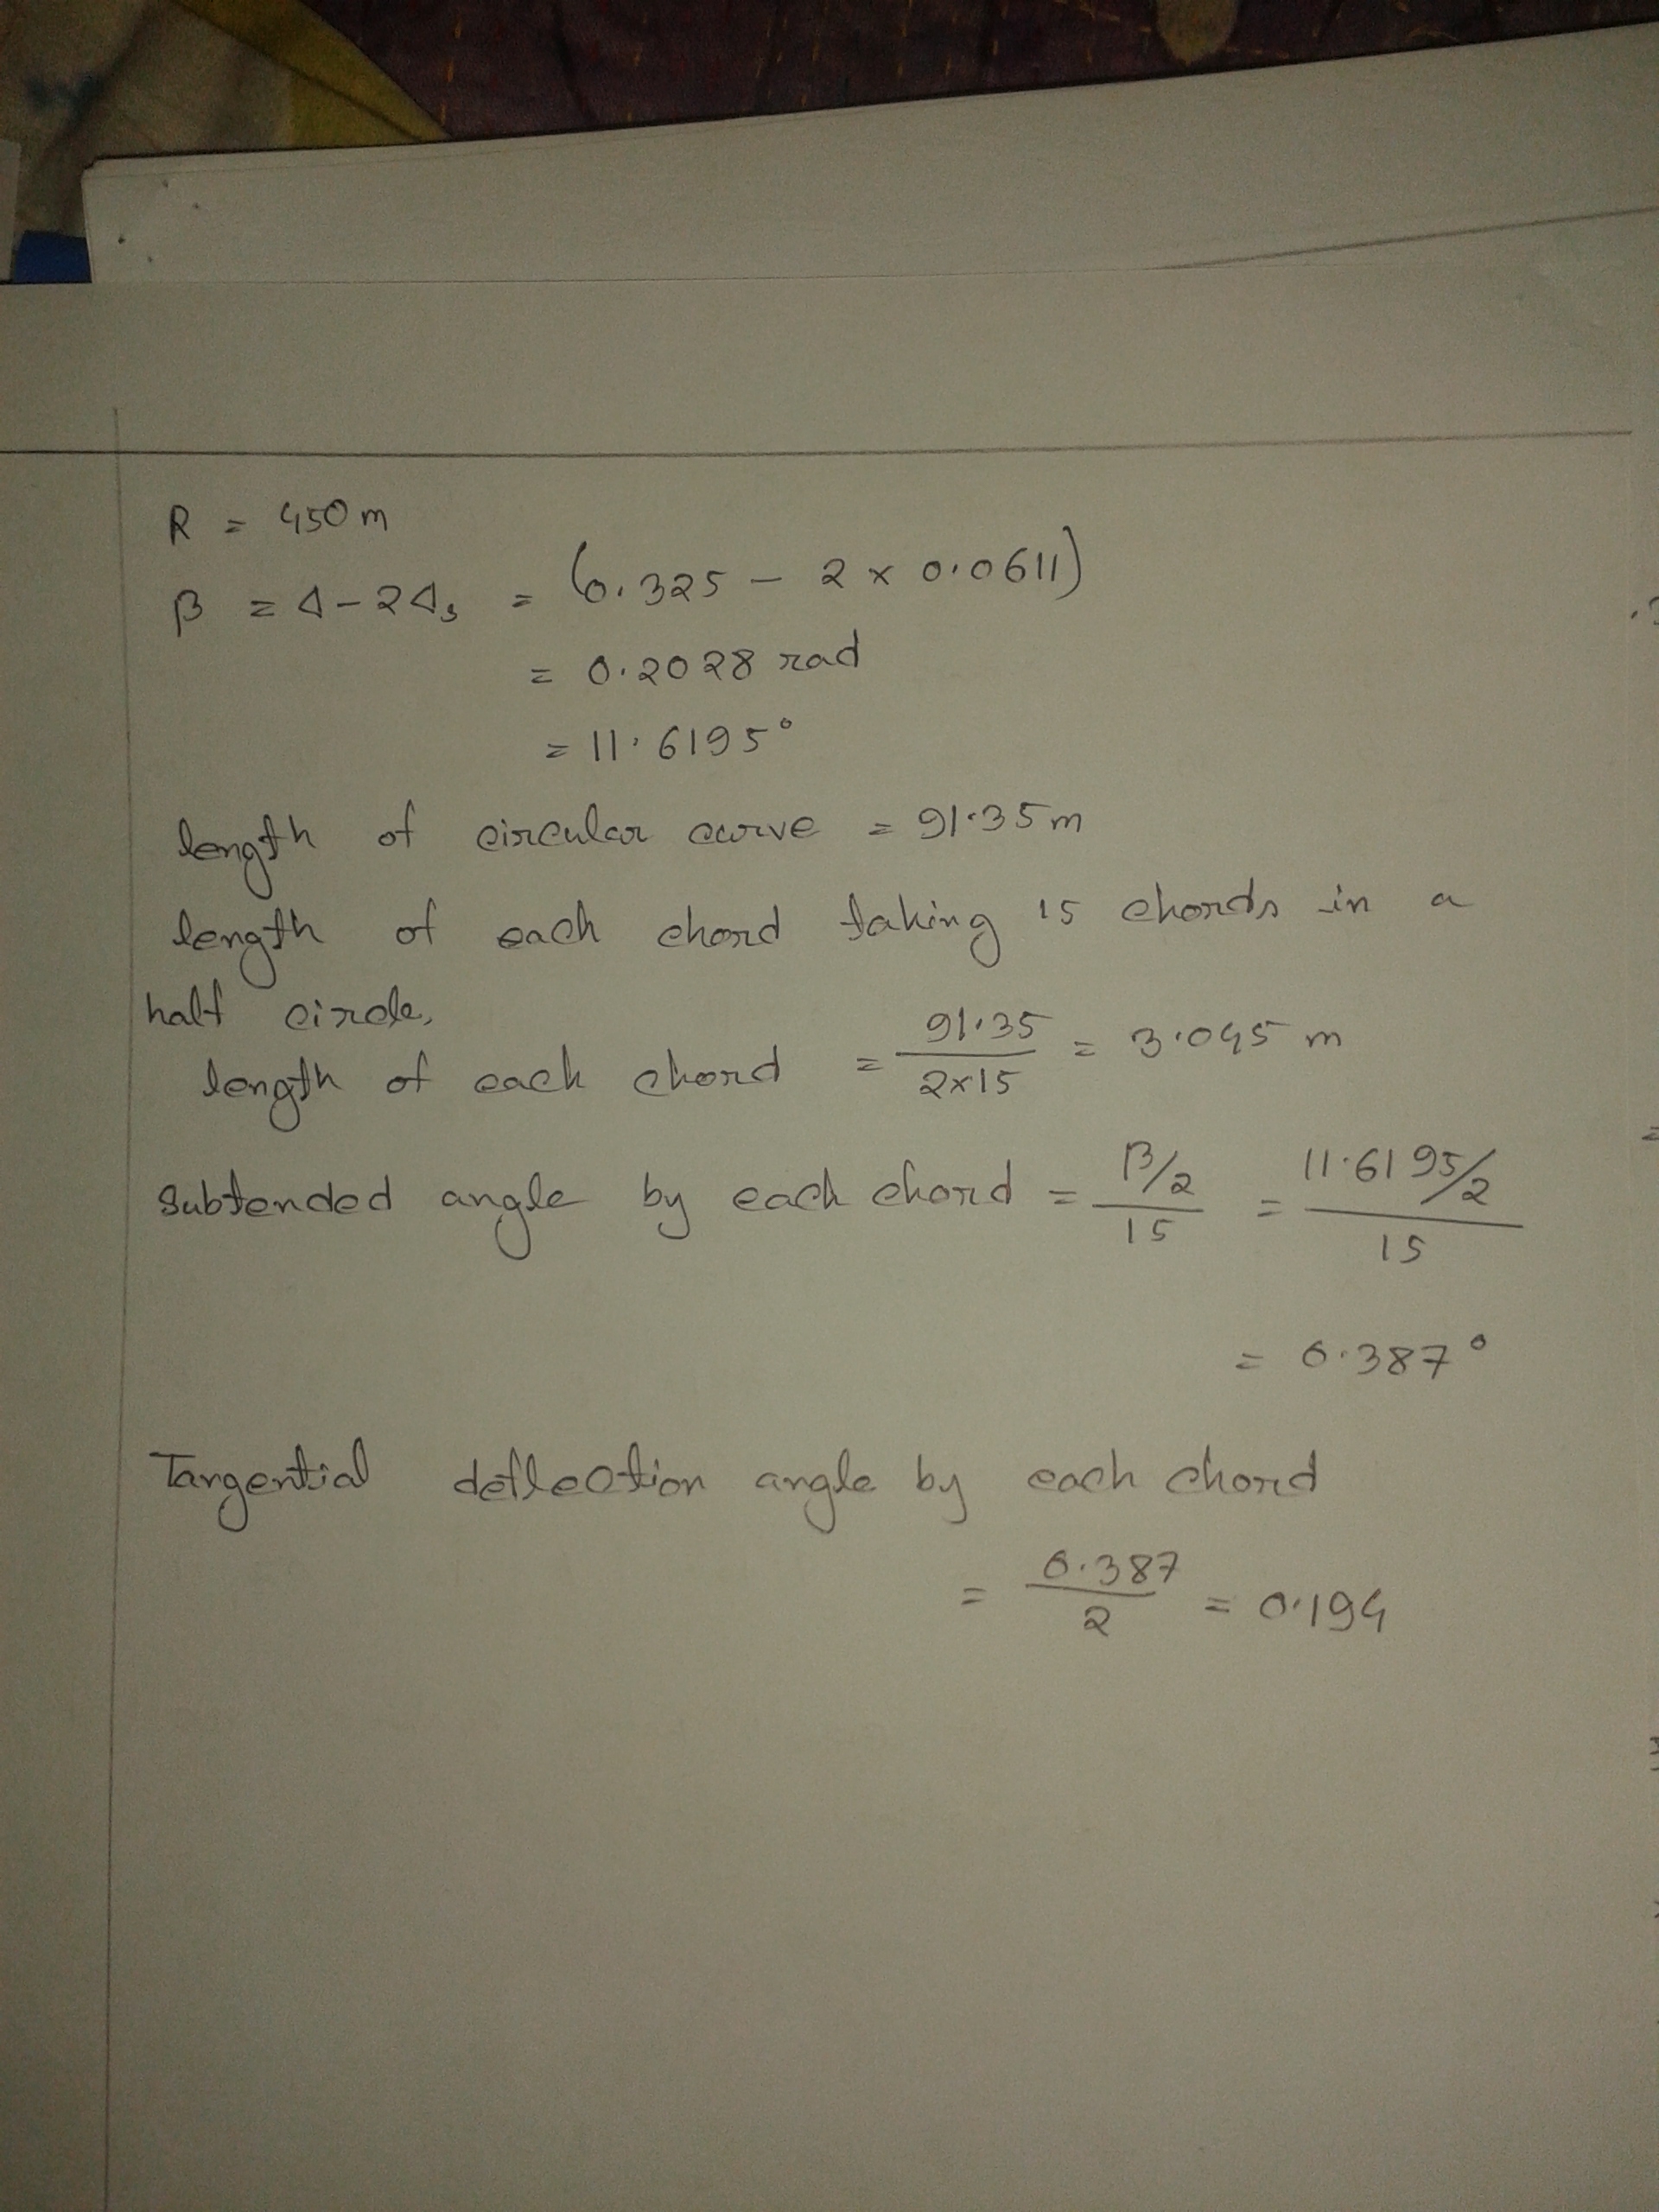 R = 450 m
β = Δ - 2Δs = (0.325 - 2 × 0.0611)
= 0.2028 rad
= 11.6195°
length of circular curve = 91.35 m
length of each chord taking 15 chords in a
half circle,
length of each chord = 91.35 / 2×15 = 3.045 m
Subtended angle by each chord = β/2 / 15 = 11.6195/2 / 15
= 0.387°
Tangential deflection angle by each chord
= 0.387 / 2 = 0.194